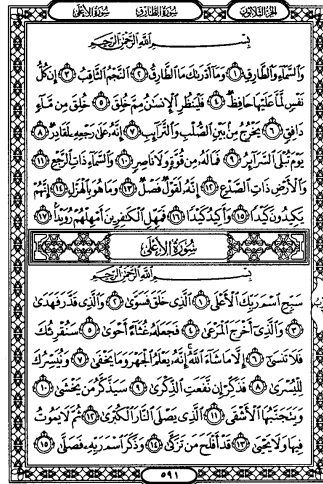 الجزء الثلاثون سورة الطارق سورة الأعلى
بسم الله الرحمن الرحيم
وَالسَّمَاءِ وَالطَّارِقِ ١ وَمَا أَدْرَاكَ مَا الطَّارِقُ ٢ النَّجْمُ الثَّاقِبُ ٣ إِن كُلُّ
نَفْسٍ لَّمَّا عَلَيْهَا حَافِظٌ ٤ فَلْيَنظُرِ الْإِنسَانُ مِمَّ خُلِقَ ٥ خُلِقَ مِن مَّاءٍ
دَافِقٍ ٦ يَخْرُجُ مِن بَيْنِ الصُّلْبِ وَالتَّرَائِبِ ٧ إِنَّهُ عَلَىٰ رَجْعِهِ لَقَادِرٌ ٨
يَوْمَ تُبْلَى السَّرَائِرُ ٩ فَمَا لَهُ مِن قُوَّةٍ وَلَا نَاصِرٍ ١٠ وَالسَّمَاءِ ذَاتِ الرَّجْعِ ١١
وَالْأَرْضِ ذَاتِ الصَّدْعِ ١٢ إِنَّهُ لَقَوْلٌ فَصْلٌ ١٣ وَمَا هُوَ بِالْهَزْلِ ١٤ إِنَّهُمْ
يَكِيدُونَ كَيْدًا ١٥ وَأَكِيدُ كَيْدًا ١٦ فَمَهِّلِ الْكَافِرِينَ أَمْهِلْهُمْ رُوَيْدًا ١٧
سورة الأعلى
بسم الله الرحمن الرحيم
سَبِّحِ اسْمَ رَبِّكَ الْأَعْلَى ١ الَّذِي خَلَقَ فَسَوَّىٰ ٢ وَالَّذِي قَدَّرَ فَهَدَىٰ
٣ وَالَّذِي أَخْرَجَ الْمَرْعَىٰ ٤ فَجَعَلَهُ غُثَاءً أَحْوَىٰ ٥ سَنُقْرِئُكَ
فَلَا تَنسَىٰ ٦ إِلَّا مَا شَاءَ اللَّهُ إِنَّهُ يَعْلَمُ الْجَهْرَ وَمَا يَخْفَىٰ ٧ وَنُيَسِّرُكَ
لِلْيُسْرَىٰ ٨ فَذَكِّرْ إِن نَّفَعَتِ الذِّكْرَىٰ ٩ سَيَذَّكَّرُ مَن يَخْشَىٰ ١٠
وَيَتَجَنَّبُهَا الْأَشْقَى ١١ الَّذِي يَصْلَى النَّارَ الْكُبْرَىٰ ١٢ ثُمَّ لَا يَمُوتُ
فِيهَا وَلَا يَحْيَىٰ ١٣ قَدْ أَفْلَحَ مَن تَزَكَّىٰ ١٤ وَذَكَرَ اسْمَ رَبِّهِ فَصَلَّىٰ ١٥
٥٩١